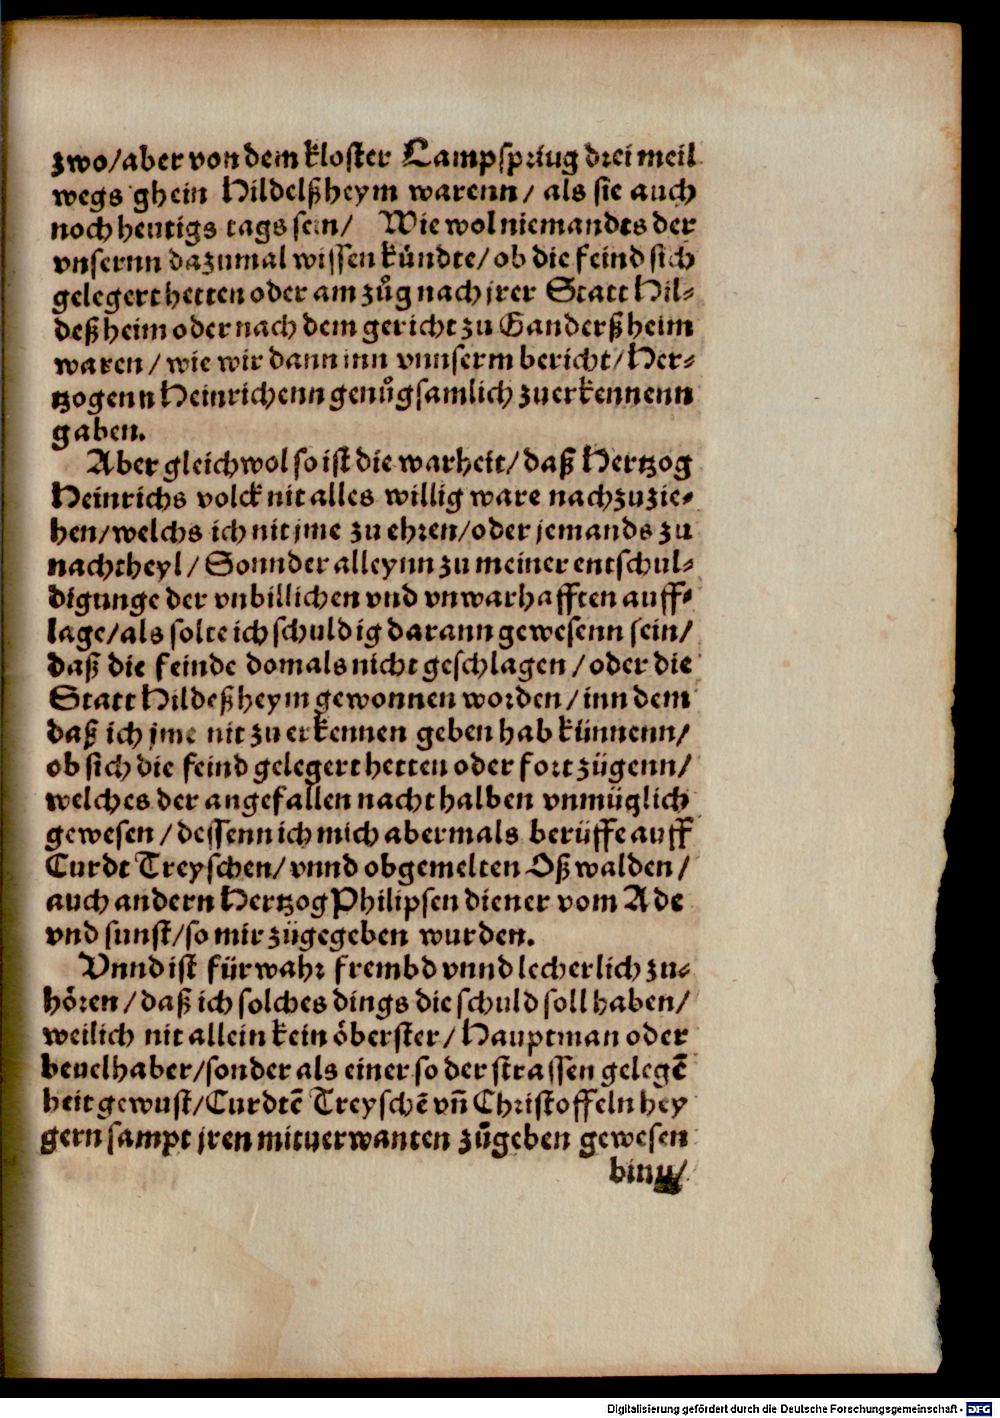 zwo/aber von dem kloster Lampspriug drei meil
wegs ghein Hildelßheym warenn/ als sie auch
noch heutigs tags sein/ Wie wol niemandts der
vnsernn dazumal wissen kündte/ob die feind sich
gelegert hetten oder am zůg nach jrer Statt Hil⸗
deßheim oder nach dem gericht zu Ganderßheim
waren/wie wir dann inn vnnserm bericht/Her⸗
tzogenn Heinrichenn genůgsamlich zuerkennenn
gaben.
Aber gleichwol so ist die warheit/daß Hertzog
Heinrichs volck nit alles willig ware nachzuzie⸗
hen/welchs ich nit jme zu ehren/oder jemands zu
nachtheyl/Sonnder alleynn zu meiner entschul⸗
digunge der vnbillichen vnd vnwarhafften auff⸗
lage/als solte ich schuldig darann gewesenn sein/
daß die feinde domals nicht geschlagen/oder die
Statt Hildeßheym gewonnen worden/inn dem
daß ich jme nit zu erkennen geben hab künnenn/
ob sich die feind gelegert hetten oder fort zügenn/
welches der angefallen nacht halben vnmüglich
gewesen/dessenn ich mich abermals berüffe auff
Curdt Treyschen/vnnd obgemelten Oßwalden/
auch andern Hertzog Philipsen diener vom Ade
vnd sunst/so mir zügegeben wurden.
Vnnd ist fürwahr frembd vnnd lecherlich zu⸗
hören/daß ich solches dings die schuld soll haben/
weil ich nit allein kein öberster/Hauptman oder
beuelhaber/sonder als einer so der strassen gelegē
heit gewust/Curdtē Treyschē vn̄ Christoffeln hey
gern sampt jren mituerwanten zůgeben gewesen
binn/
Digitalisierung gefördert durch die Deutsche Forschungsgemeinschaft - DFG